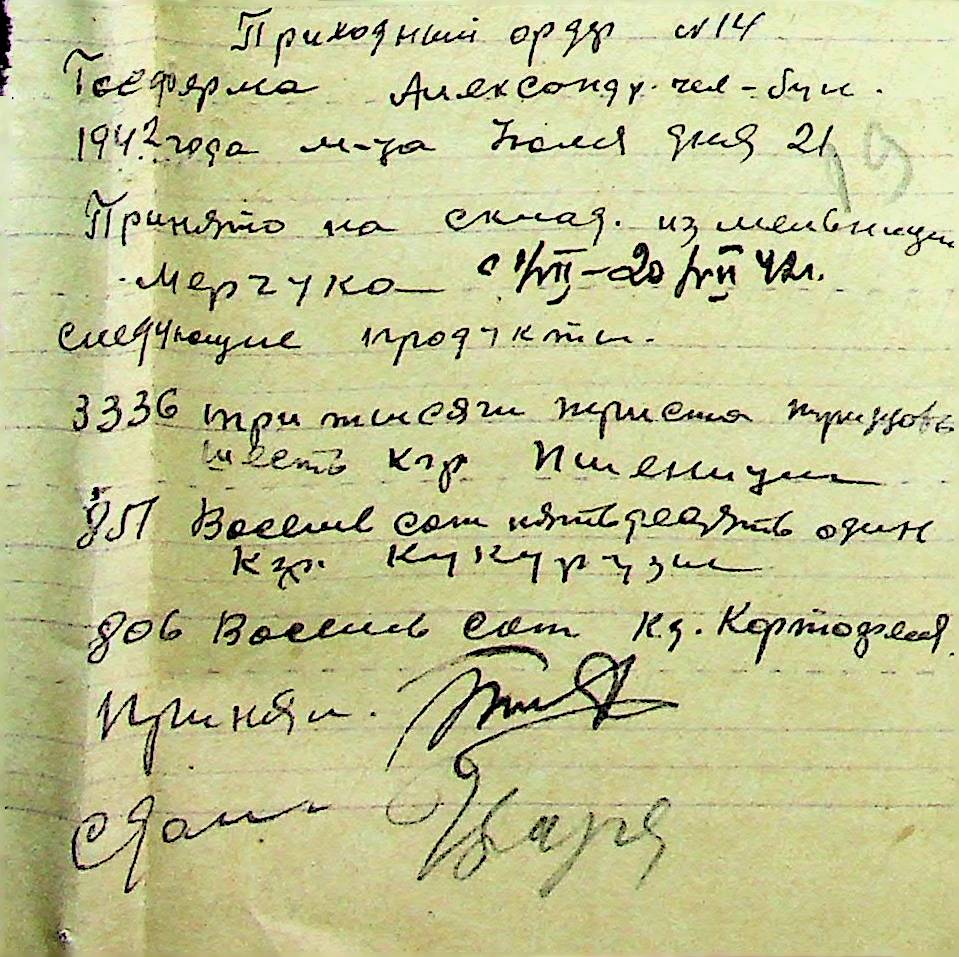 Приходный ордр №14
Госферма Александр. чел-бун.
1942 года м-ца Июля дня 21
19
Принято на склад. из мельницы
Мерчука с 1/VII-20/VII 42г.
следующие продукты.
3336 три тысячи триста тридцовь
шесть кгр Пшеницы
851 Восемь сот пятьдесять один
Кгр. Кукурузы
800 Восемь сот Кг. Картофеля.
Принял.
Сдал